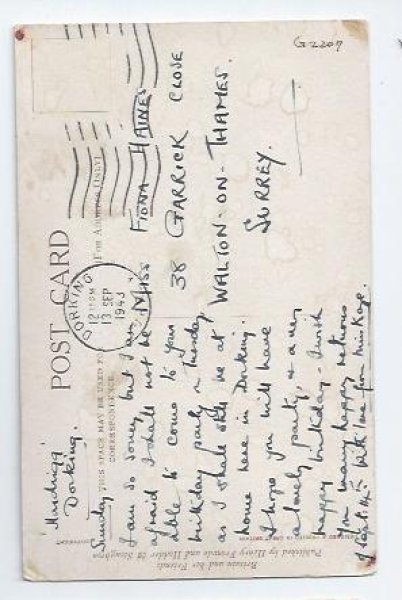 G2207
POST CARD
(FOR ADDRESS ONLY)
THIS SPACE MAY BE USED FOR
CORRESPONDENCE
DORKING
13 SEP
1943
Miss FIONA HAINES
38 GARRICK CLOSE
WALTON-ON-THAMES.
SURREY.
Dorking.
Sunday
I am so sorry, but I am
afraid I shall not be
able to come to your
birthday party on Tuesday
as I shall still be at
home here in Dorking.
I hope you will have
a lovely party, & a very
happy birthday - I wish
you many happy returns
with love from
Published by Henry Frowde and Hodder & Stoughton